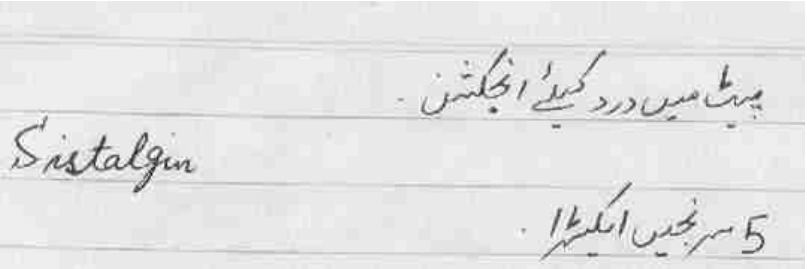 پیٹ میں درد کیلئے انجکشن۔
Sistalgin
5 سرنجیں ایکسٹرا۔